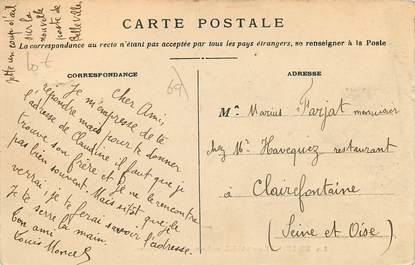 Jette un coup d'œil
sur la
nouvelle
poste de
Belleville
CARTE POSTALE
La correspondance au recto n'étant pas acceptée par tous les pays étrangers, se renseigner à la Poste
CORRESPONDANCE
ADRESSE
69
Cher Ami
Je m'empresse de te
répondre mais pour te donner
l'adresse de Claudine il faut que je
trouve son frère et je ne le rencontre
pas bien souvent. Mais sitôt que je le
verrai, je te ferai savoir l'adresse.
Je te serre la main.
ton ami
Louis
Mr Marius Farjat menuisier
chez Mr Havequez restaurant
à Clairefontaine
(Seine et Oise)